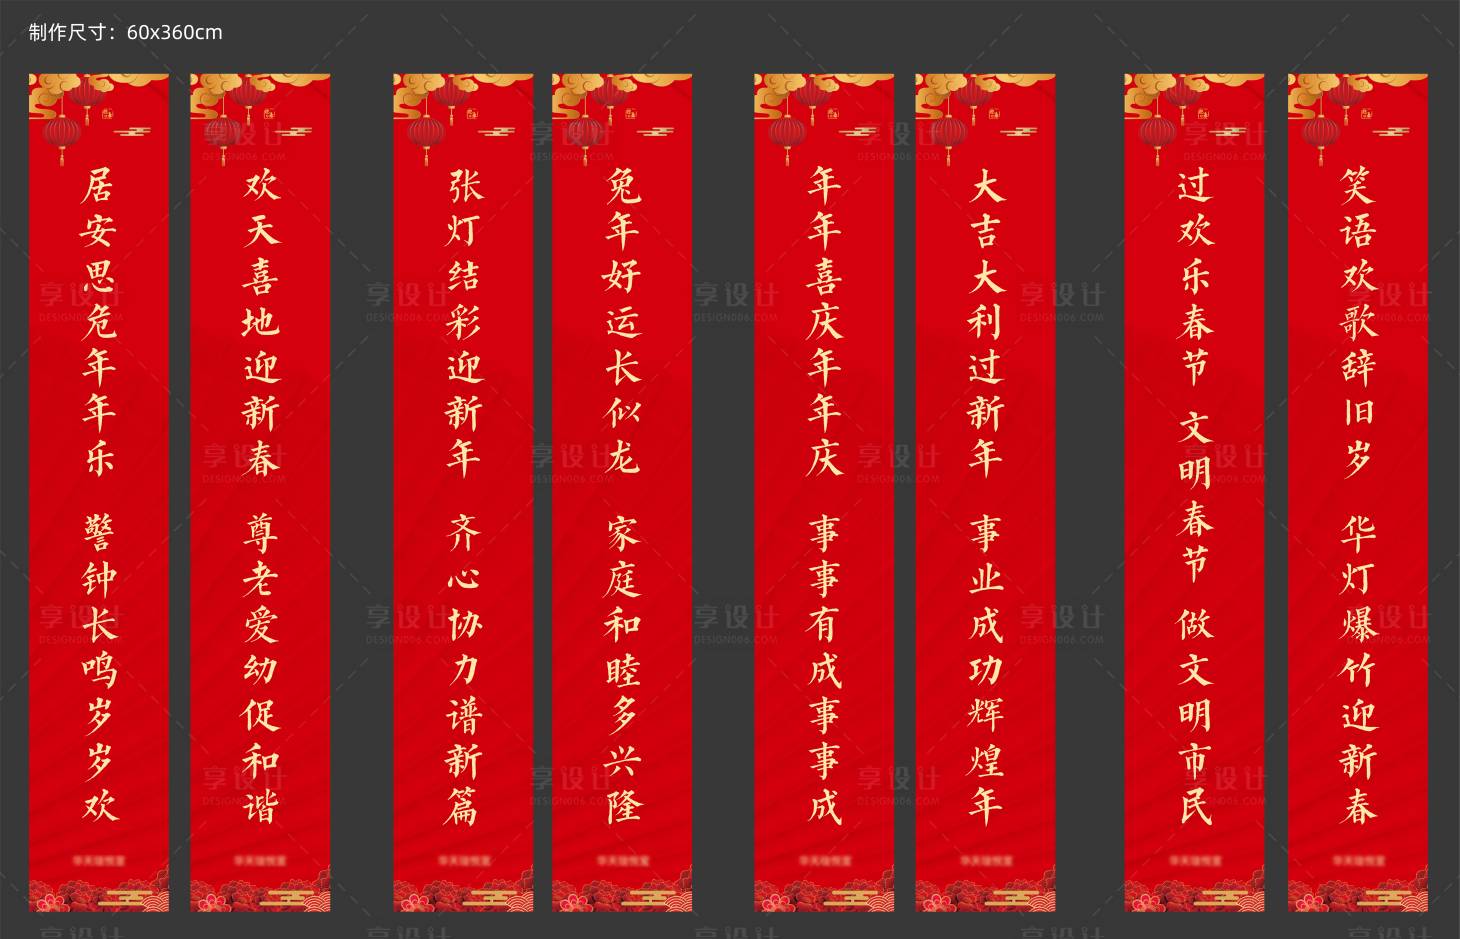 制作尺寸：60x360cm
居安思危年年乐 警钟长鸣岁岁欢
欢天喜地迎新春 尊老爱幼促和谐
张灯结彩迎新年 齐心协力谱新篇
兔年好运长似龙 家庭和睦多兴隆
年年喜庆年年庆 事事有成事事成
大吉大利过新年 事业成功辉煌年
过欢乐春节 文明春节 做文明市民
笑语欢歌辞旧岁 华灯爆竹迎新春
享设计
DESIGN006.COM